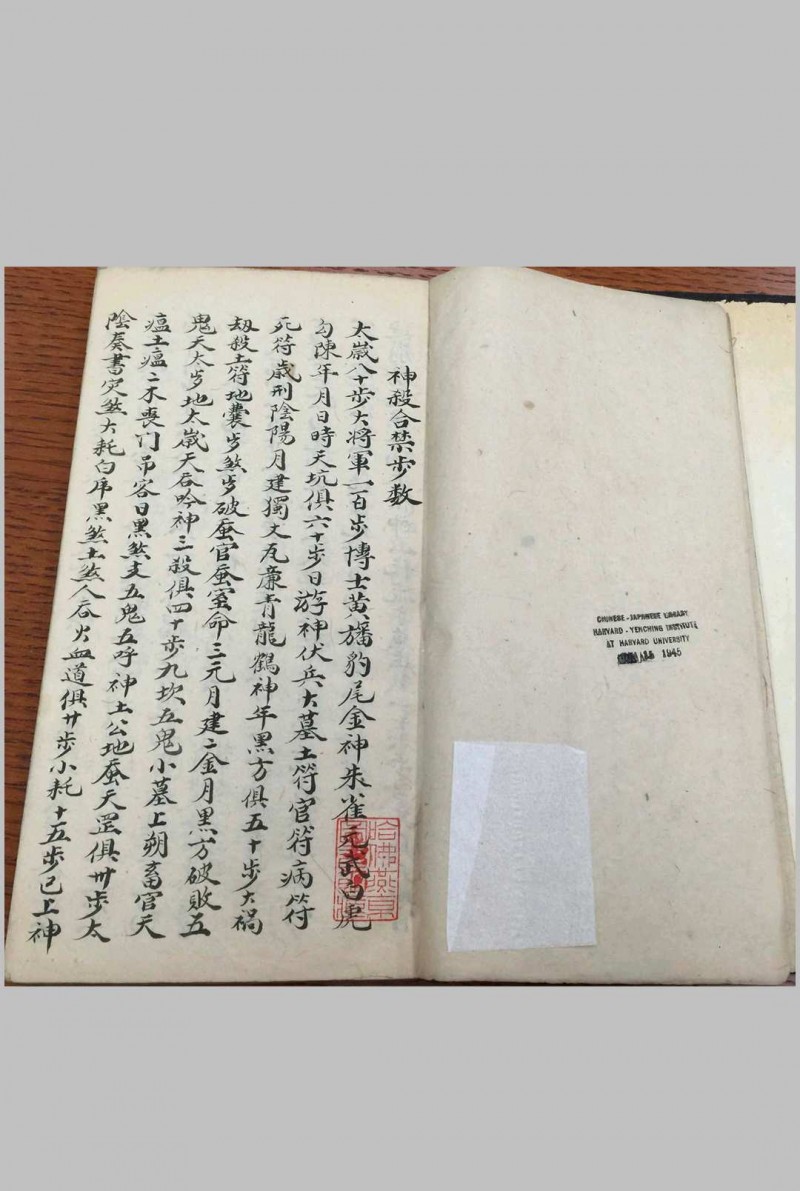 神殺合禁步数
太歲八十步大将軍一百步博士黄旛豹尾金神朱雀元武白虎
勾陳年月日時天坑俱六十步日游神伏兵大墓土符官符病符
死符歲刑陰陽月建獨火瓦廉青龍鶴神年黑方俱五十步大禍
刼殺土符地囊歩煞歩破蚕官蚕室命三元月建二金月黑方破敗五
鬼天太歩地太歲天吞吟神三殺俱四十步九坎五鬼小墓上朔畜官天
瘟土瘟二木喪门吊客日黑煞支五鬼五呼神土公地蚕天罡俱卅步太
陰奏書災煞大耗白虎黑煞土煞人吞火血道俱廿步小耗十五步已上神
哈佛燕京
CHINESE-JAPANESE LIBRARY
HARVARD-YENCHING INSTITUTE
AT HARVARD UNIVERSITY
1945